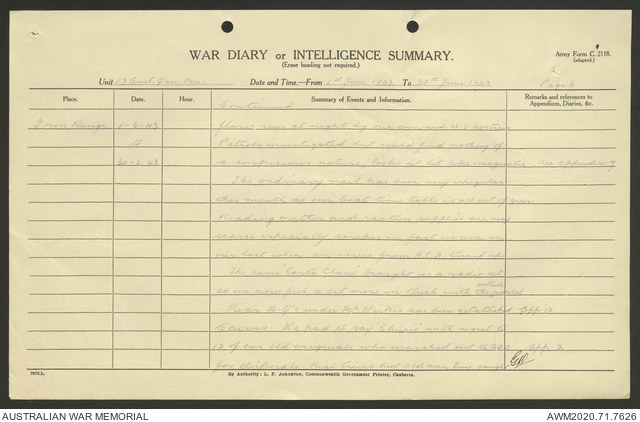 WAR DIARY or INTELLIGENCE SUMMARY.
(Erase heading not required.)
Army Form C. 2118.
(adapted.)
Unit 13 Aust Gsn Bn. Date and Time.—From 1st June 1943 To 30th June 1943
Page 6
Place. Date. Hour. Summary of Events and Information. Remarks and references to Appendices, Diaries, &c.
Continued
Iron Range 1-6-43 flares seen at night by our own and U.S. sentries
to Patrols investigated but could find nothing of
30-6-43 a suspicious nature, looks a bit like magnetic see appendix
The ordinary mail has been very irregular
this month as our boat time table is all out of gear
Reading matter and canteen supplies are very
scarce especially smokes in fact we were on
our last when an issue from A.C.F. turned up
The same "Santa Claus" brought us a radio set
so we now feel a bit more in touch with the outside world
Rear H.Q's under has been established App 12
Cairns. We had to say with regret to
12 of our old originals who marched out to GDD App 2
for disposal. but Old man Time caught
7075L.
By Authority: L. F. Johnston, Commonwealth Government Printer, Canberra.
AUSTRALIAN WAR MEMORIAL
AWM2020.71.7626